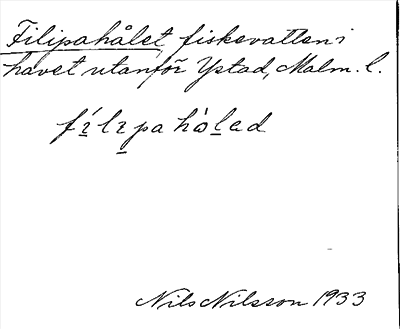 Filipahålet, fiskevatten i
havet utanför Ystad, Malm. l.
fílɪpahò̱lad
Nils Nilsson 1933